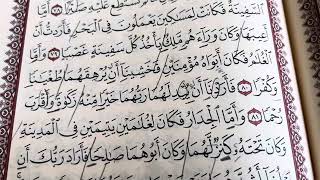 السَّفِينَةُ فَكَانَتْ لِمَسَٰكِينَ يَعْمَلُونَ فِى ٱلْبَحْرِ فَأَرَدتُّ أَنْ
أَعِيبَهَا وَكَانَ وَرَآءَهُم مَّلِكٌ يَأْخُذُ كُلَّ سَفِينَةٍ غَصْبًا ٧٩ وَأَمَّا
ٱلْغُلَٰمُ فَكَانَ أَبَوَاهُ مُؤْمِنَيْنِ فَخَشِينَآ أَن يُرْهِقَهُمَا طُغْيَٰنًا
وَكُفْرًا ٨٠ فَأَرَدْنَآ أَن يُبْدِلَهُمَا رَبُّهُمَا خَيْرًا مِّنْهُ زَكَوٰةً وَأَقْرَبَ
رُحْمًا ٨١ وَأَمَّا ٱلْجِدَارُ فَكَانَ لِغُلَٰمَيْنِ يَتِيمَيْنِ فِى ٱلْمَدِينَةِ
وَكَانَ تَحْتَهُۥ كَنزٌ لَّهُمَا وَكَانَ أَبُوهُمَا صَٰلِحًا فَأَرَادَ رَبُّكَ أَن